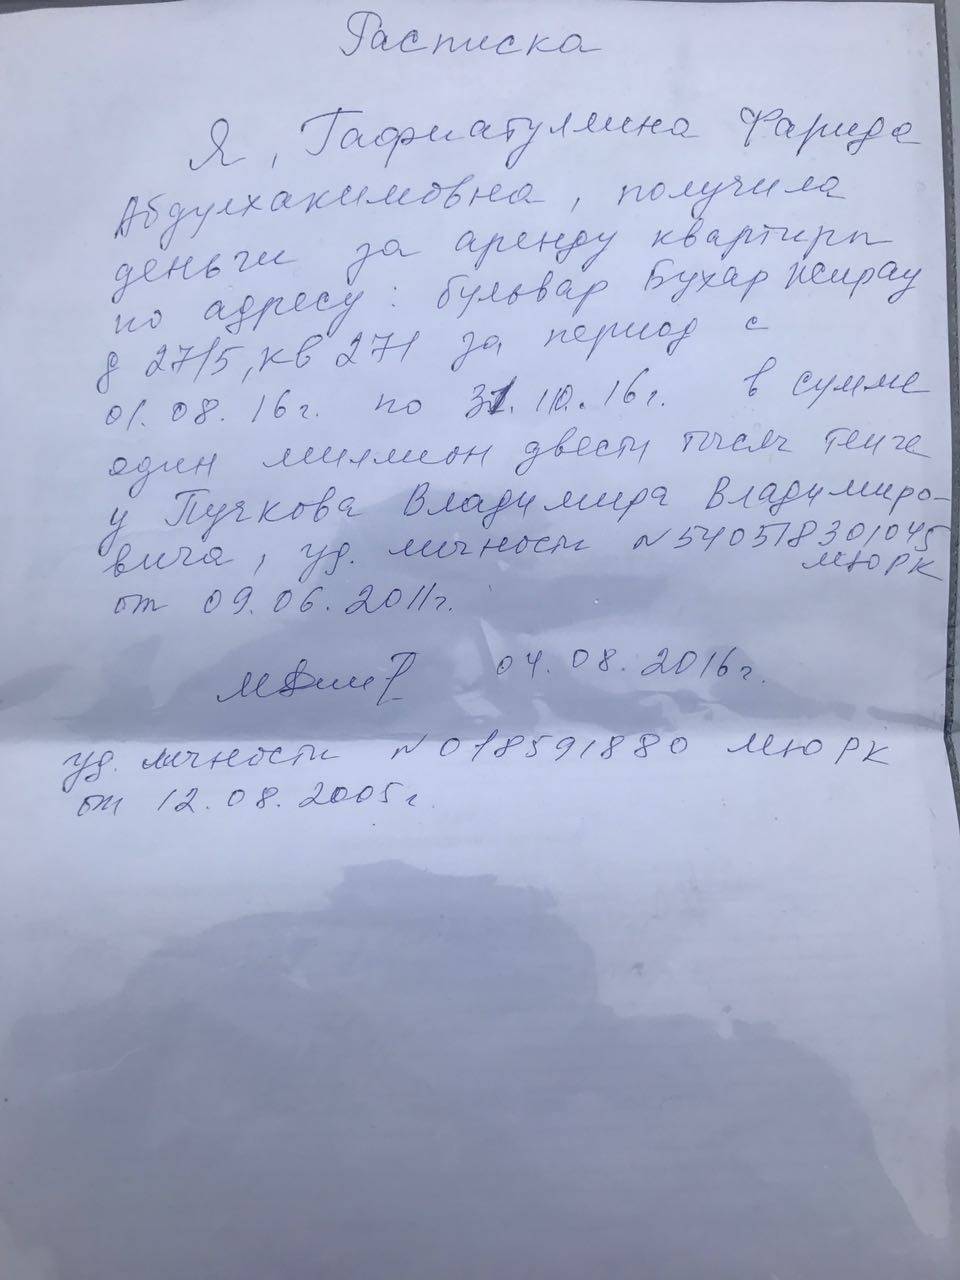 Расписка
Я, Гафиатуллина Фарида
Абдулхакимовна, получила
деньги за аренду квартиры
по адресу: бульвар Бухар Жирау
д 27/5, кв 271 за период с
01.08.16г. по 31.10.16г. в сумме
один миллион двести тысяч тенге
у Пучкова Владимира Владимиро-
вича, уд. личности N540518301045
МЮРК
от 09.06.2011г.
04.08.2016г.
уд. личности N018591880 МЮРК
от 12.08.2005г.